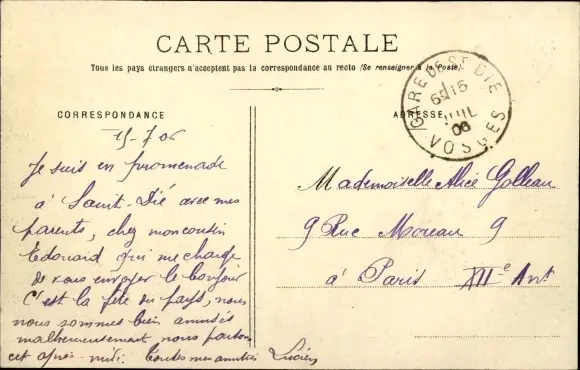 CARTE POSTALE
Tous les pays étrangers n'acceptent pas la correspondance au recto (Se renseigner à la Poste).
CORRESPONDANCE
15-7 06
Je suis en promenade
à Saint-Dié avec mes
parents, chez mon cousin
Edouard qui me charge
de vous envoyer le bonjour
C'est la fête du pays, nous
nous sommes bien amusés
malheureusement nous partons
cet après-midi. Toutes mes amitiés Lucien
ADRESSE
GARE DE ST DIÉ
15
JUIL
06
VOSGES
Mademoiselle Alice Golleau
9 Rue Moreau 9
à Paris XIIe Arrt